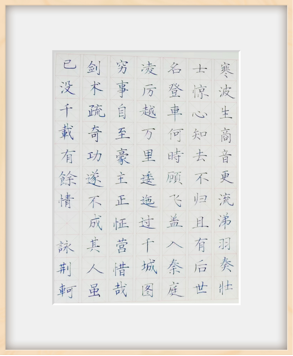 寒波生商音更流涕羽奏壮
士惊心知去不归且有后世
名登車何時顾飞盖入秦庭
凌厉越万里逶迤过千城图
穷事自至豪主正怔营惜哉
剑术疏奇功遂不成其人虽
已没千載有餘情 詠荆軻